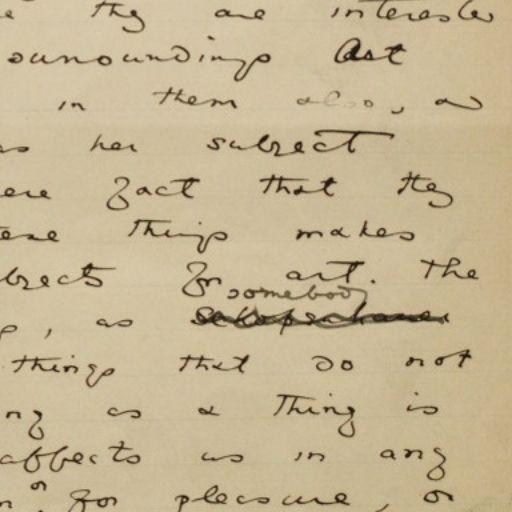 they are intereste
surroundings Art
in them also, a
as her subject
ere fact that they
ese things makes
bjects for art. The
somebody
, as Schopenhauer
things that do not
ng as a thing is
affects us in any
or for pleasure, or